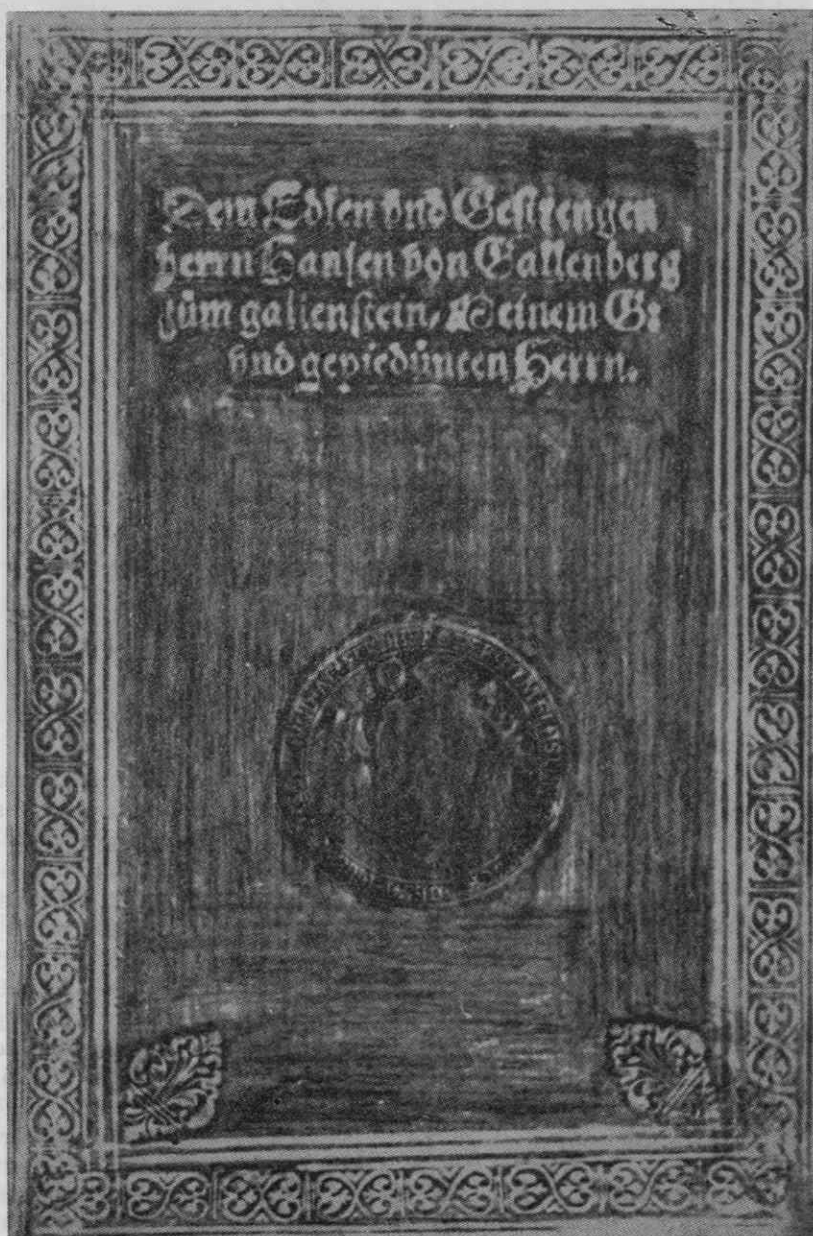 Dem Edlen vnd Gestrengen
herrn Hansen von Gallenberg
züm gallenstein, Meinem G:
vnd gepiedünten Herrn.